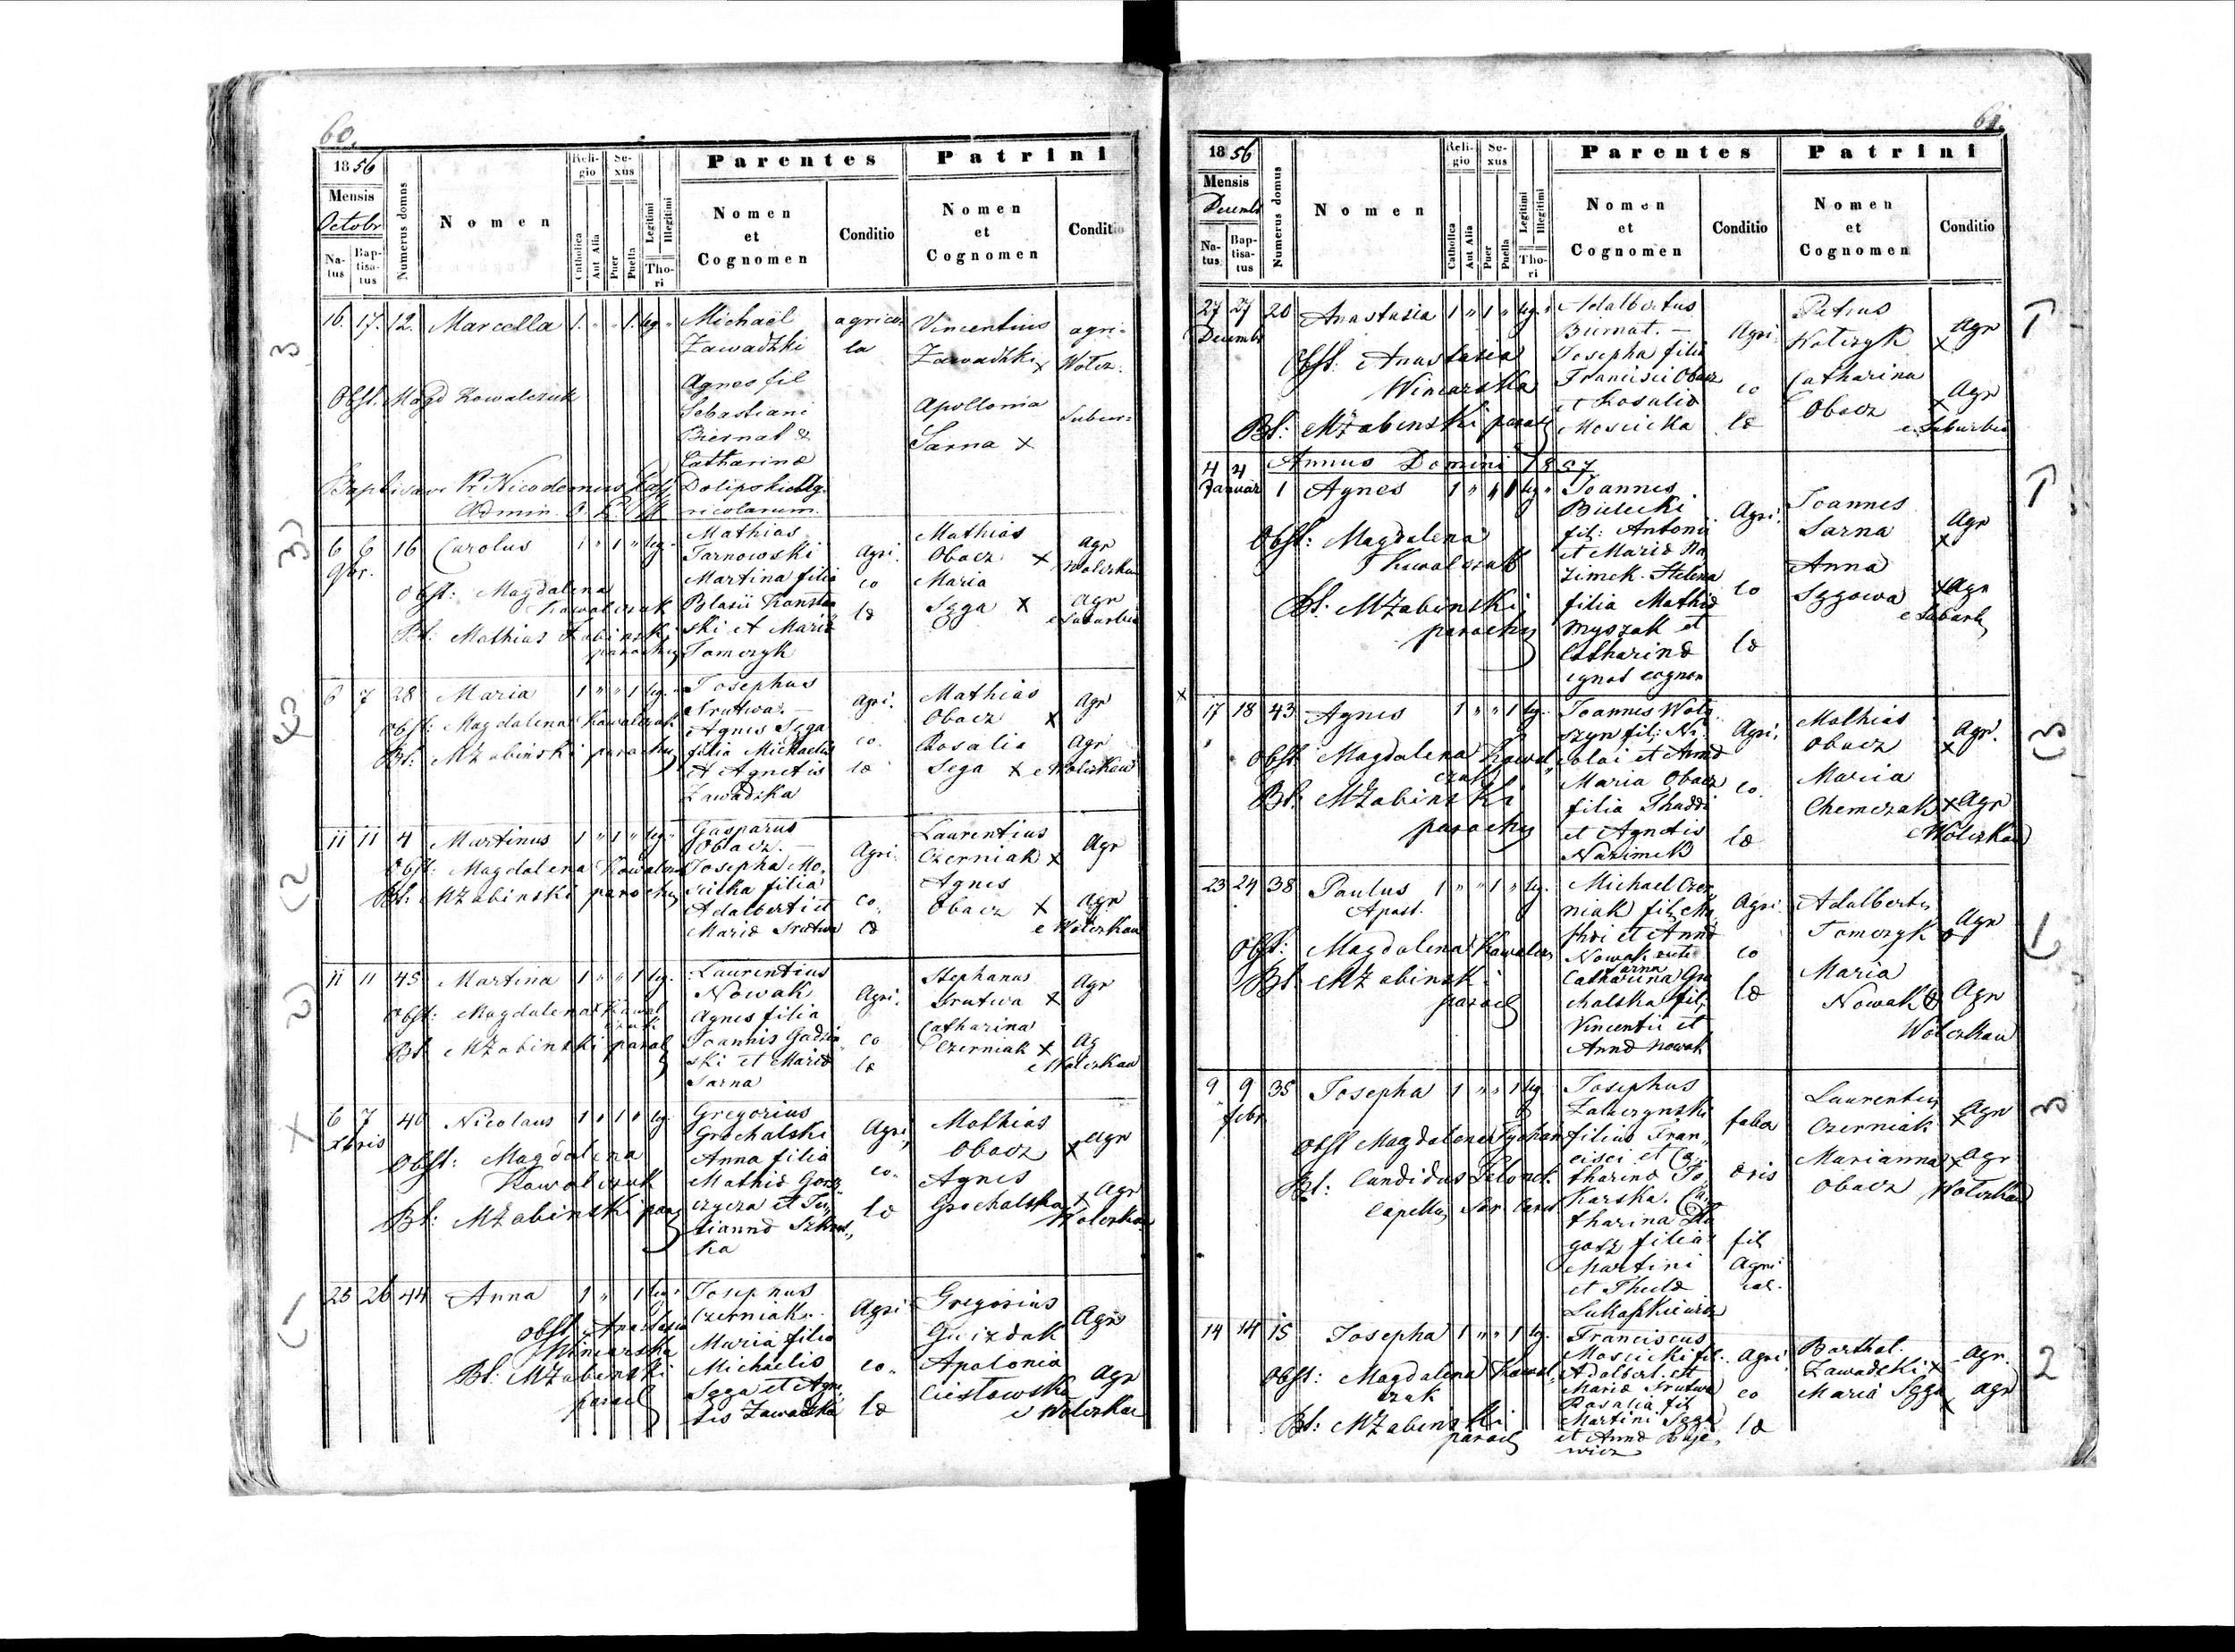 60.
1856
Mensis
Octobr
Na-
tus
Bap-
tisa-
tus
Numerus domus
Nomen
Reli-
gio
Catholica
Aut Alia
Se-
xus
Puer
Puella
Legitimi
Illegitimi
Tho-
ri
Parentes
Nomen
et
Cognomen
Conditio
Patrini
Nomen
et
Cognomen
Conditio
16. 17. 12. Marcella 1. " " 1. leg "
Obst. Magd Kowalczuk
Baptisavi Pr Nicodemus
Admin.
Michaël
Zawadzki
Agnes fil
Sebastiani
Biernat &
Catharinæ
agrico-
la
Vincentius
Zawadzki x
Apollonia
Sarna x
agri-
Wolcz.
Subur-
3
6 6 16 Carolus 1 " 1 " leg.
9br.
Obst: Magdalena
Kowalczuk
Bt: Mathias Żabinski
parochus
Mathias
Tarnowski
Martina filia
Blasii
ski et Mariæ
Tomczyk
Agri
co
læ
Mathias
Obacz x
Maria
Sęga x
Agr
Wolczkau
Agr
e Suburbio
3)
6 7 28 Maria 1 " " 1 leg.
Obst: Magdalena Kowalczuk
Bt: MŻabinski parochus
Josephus
Srutwa. —
Agnes Sęga
filia Michaelis
et Agnetis
Zawadzka
Agri.
co.
læ
Mathias
Obacz x
Rosalia
Sega x
Agr
Agr
e Wolczkau
11 11 4 Martinus 1 " 1 " leg.
Obst: Magdalena Kowalczuk
Bt: MŻabinski parochus
Gasparus
Obacz. —
Josepha Mo-
scicka filia
Adalberti et
Mariæ Srutwa
Agri.
co.
læ
Laurentius
Czerniak x
Agnes
Obacz x
Agr
Agr
e Wolczkau
(2
11 11 45 Martina 1 " " 1 leg.
Obst: Magdalena Kowal
czuk
Bt. MŻabinski paroch
Laurentius
Nowak
Agnes filia
Joannis
ski et Mariæ
Sarna
Agri.
co
læ
Stephanus
Srutwa x
Catharina
Czerniak x
Agr
Ag
e Wolczkau
2)
6 7 40 Nicolaus 1 " 1 " leg.
Xbris
Obst: Magdalena
Kowalczuk
Bt: MŻabinski par
Gregorius
Grochalski
Anna filia
Mathiæ
ka
Agri
co.
læ
Mathias
Obacz x
Agnes
Grochalska x
Agr
Agr
Wolczkau
x
25 26 44 Anna 1 " " 1 leg
Obst: Anastasia
Winiarska
Bt: MŻabinski
paroch
Josephus
Czerniak.
Maria filia
Michaelis
Sęga et Agne-
tis Zawadzka
Agri
co.
læ
Gregorius
Gwizdak
Apolonia
Ciesłowska
Agr
Agr
e Wolczkau
61.
1856
Mensis
Decemb
Na-
tus
Bap-
tisa-
tus
Numerus domus
Nomen
Reli-
gio
Catholica
Aut Alia
Se-
xus
Puer
Puella
Legitimi
Illegitimi
Tho-
ri
Parentes
Nomen
et
Cognomen
Conditio
Patrini
Nomen
et
Cognomen
Conditio
27 27 20 Anastasia 1 " 1 " leg. "
Decemb
Obst: Anastasia
Winiarska
Bt: MŻabinski paroch
Adalbertus
Biernat. —
Josepha filia
Francisci Obacz
et Rosaliæ
Moscicka
Agri
co
læ
Petrus
Catharina
Obacz
x Agr
x Agr
e Suburbio
Annus Domini 1857
4 4 1 Agnes 1 " " 1 leg "
Januar
Obst: Magdalena
Kowalczuk
Bt. MŻabinski
parochus
Joannes
Bielecki
fil: Antonii
et Mariæ Na
zimek. Helena
filia Mathiæ
Myszak et
Catharinæ
ignot cognom
Agri.
co
læ
Joannes
Sarna
Anna
Sęgowa
Agr
x
x Agr
e Suburb
17 18 43 Agnes 1 " " 1 leg.
Obst: Magdalena Kowal
czuk
Bt. MŻabinski
parochus
Joannes Wolo
szyn fil: Ni-
colai et Annæ
Maria Obacz
filia Thaddæi
et Agnetis
Nazimek
Agri.
co.
læ
Mathias
Obacz
Maria
Chemczak
Agr.
x
x Agr
e Wolczkau
(3
23 24 38 Paulus 1 " 1 " leg.
Apost.
Obst: Magdalena Kowalcz
Bt: MŻabinski
paroch
Michael Czer
niak fil Ma
thæi et Annæ
Nowak
Sarna
Catharina Gro
chalska fil
Vincentii et
Annæ Nowak
Agri
co
læ
Adalbertus
Tomczyk
Maria
Nowak
Agr
Agr
Wolczkau
9 9 35 Josepha 1 " " 1 leg
febr
Obst Magdalena
Bt: Candidus
Capellan
Josephus
filius Fran-
cisci et Ca-
tharinæ To-
karska. Ca-
tharina Dłu
gosz filia
Martini
et Theclæ
Lukaszkiewicz
faba
oris
fil
Agri
col.
Laurentius
Czerniak
Marianna
Obacz
x Agr
x Agr
Wolczkau
3
14 14 15 Josepha 1 " " 1 leg.
Obst: Magdalena Kowal
czak
Bt: MŻabinski
paroch
Franciscus
Moscicki fil.
Adalbert. et
Mariæ Srutwa
Rosalia fil
Martini Sęga
et Annæ
wicz
Agri
co
læ
Barthol.
Zawadzki x
Maria Sęga x
Agr.
Agr
2